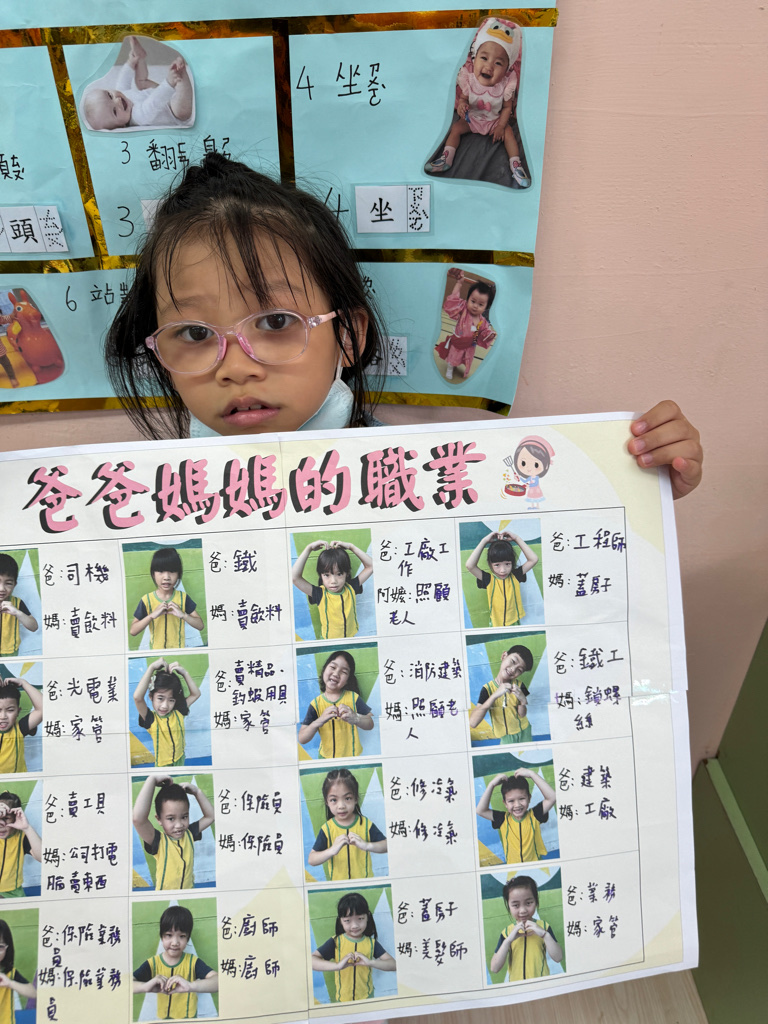 4 坐
3 翻身
頭
3
4 坐
6 站
爸爸媽媽的職業
爸:司機
媽:賣飲料
爸:鐵
媽:賣飲料
爸:工廠工
作
阿嬤:照顧
老人
爸:工程師
媽:蓋房子
爸:光電業
媽:家管
爸:賣精品、
釣蝦用具
媽:家管
爸:消防建築
媽:照顧老
人
爸:鐵工
媽:鎖螺
絲
爸:賣工具
媽:公司打電
腦賣東西
爸:保險員
媽:保險員
爸:修冷氣
媽:修冷氣
爸:建築
媽:工廠
爸:保險業務
員
媽:保險業務
員
爸:廚師
媽:廚師
爸:蓋房子
媽:美髮師
爸:業務
媽:家管